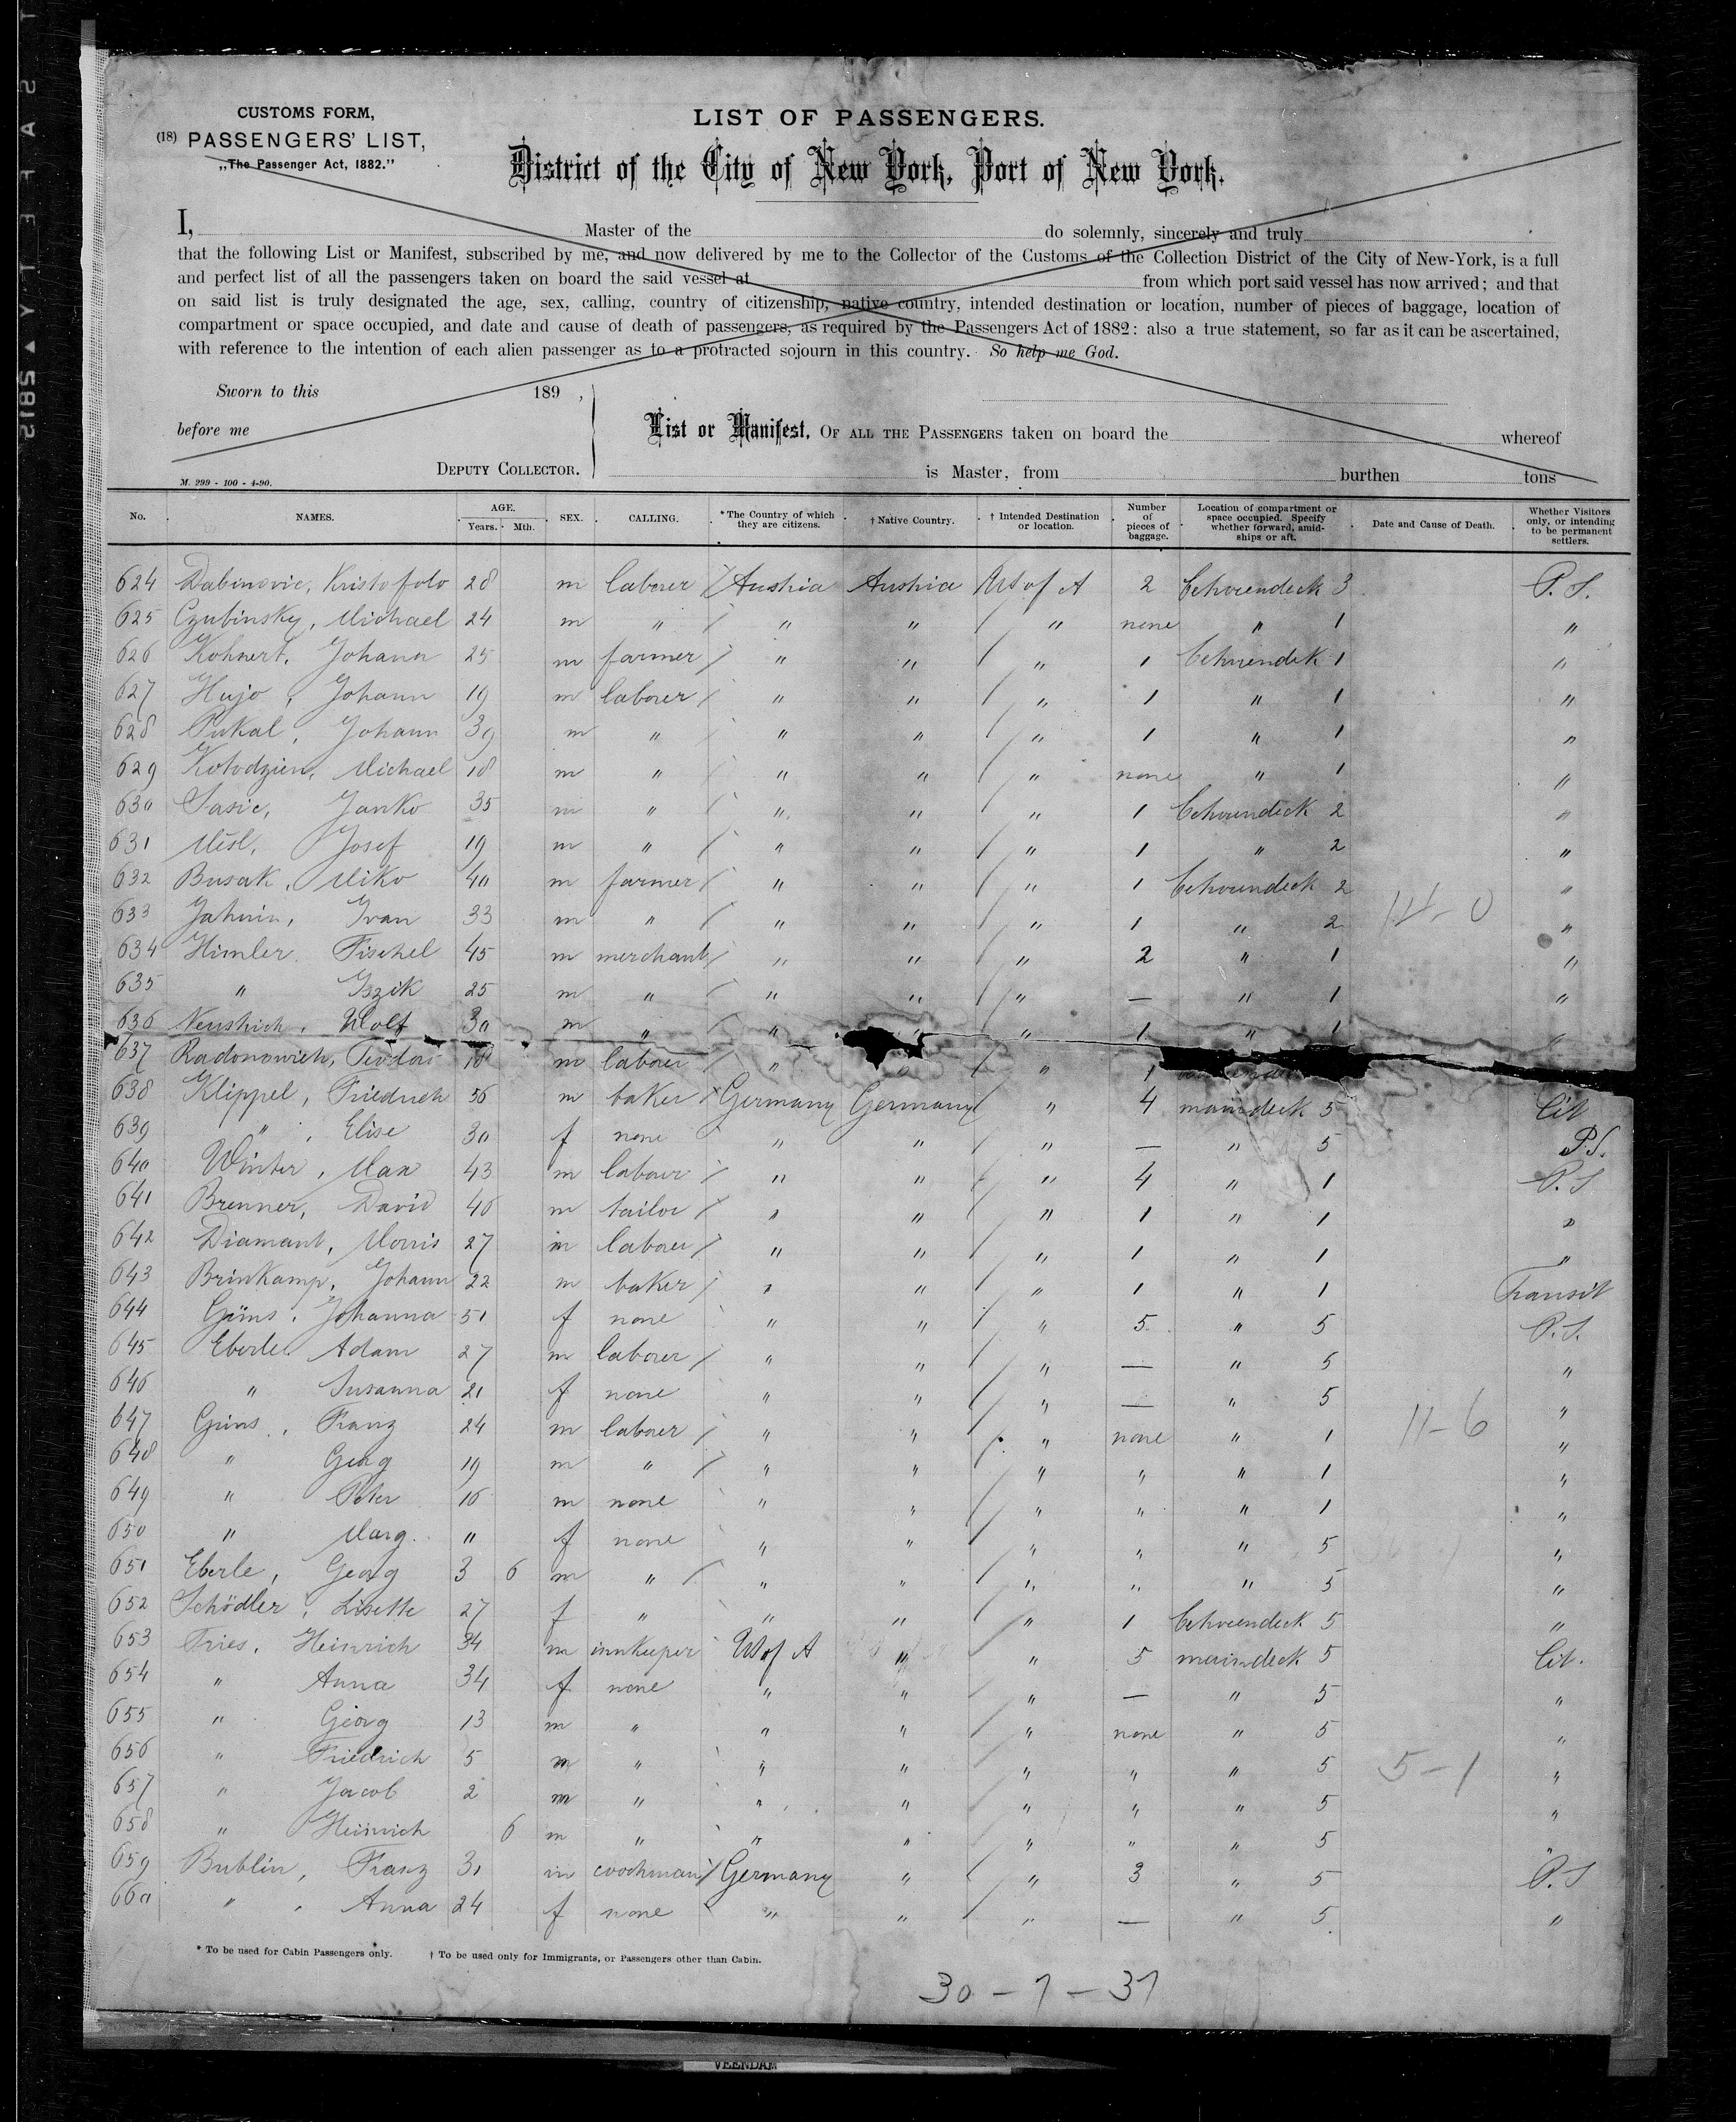 CUSTOMS FORM,
(18) PASSENGERS' LIST,
„The Passenger Act, 1882.”
LIST OF PASSENGERS.
District of the City of New York, Port of New York.
I, Master of the do solemnly, sincerely and truly
that the following List or Manifest, subscribed by me, and now delivered by me to the Collector of the Customs of the Collection District of the City of New-York, is a full
and perfect list of all the passengers taken on board the said vessel at from which port said vessel has now arrived; and that
on said list is truly designated the age, sex, calling, country of citizenship, native country, intended destination or location, number of pieces of baggage, location of
compartment or space occupied, and date and cause of death of passengers, as required by the Passengers Act of 1882: also a true statement, so far as it can be ascertained,
with reference to the intention of each alien passenger as to a protracted sojourn in this country. So help me God.
Sworn to this 189 ,
before me
DEPUTY COLLECTOR.
M. 299 - 100 - 4-90.
List or Manifest, OF ALL THE PASSENGERS taken on board the whereof
is Master, from burthen tons
No. NAMES. AGE. Years. Mth. SEX. CALLING. *The Country of which they are citizens. † Native Country. † Intended Destination or location. Number of pieces of baggage. Location of compartment or space occupied. Specify whether forward, amidships or aft. Date and Cause of Death. Whether Visitors only, or intending to be permanent settlers.
624 Dabinovic, Kristofolo 28 m laborer Austria Austria US of A 2 betweendeck 3 P. S.
625 Czubinsky, Michael 24 m " " " " none " 1 "
626 Kohnert, Johann 25 m farmer " " " 1 betweendek 1 "
627 Hujo, Johann 19 m laborer " " " 1 " 1 "
628 Pukal, Johann 39 m " " " " 1 " 1 "
629 Kolodzien, Michael 18 m " " " " none " 1 "
630 Sasic, Janko 35 m " " " " 1 betweendeck 2 "
631 Misl, Josef 19 m " " " " 1 " 2 "
632 Busak, Miko 40 m farmer " " " 1 betweendeck 2 "
633 Ivan 33 m " " " " 1 " 2 14-0 "
634 Himler Fischel 45 m merchant " " " 2 " 1 "
635 " Iszik 25 m " " " " — " 1 "
636 Wolf 30 m " " " " 1 " 1 "
637 Radonowich, Teodor 18 m laborer " " " 1
638 Klippel, Friedrich 56 m baker Germany Germany " 4 maindeck 5 Cit
639 " , Elise 30 f none " " " — " 5 P.S.
640 Winter, Max 43 m laborer " " " 4 " 1 P.S
641 Brenner, David 46 m tailor " " " 1 " 1 "
642 Diamant, Morris 27 m laborer " " " 1 " 1 "
643 Brinkamp, Johann 22 m baker " " " 1 " 1 Transit
644 Grins, Johanna 51 f none " " " 5 " 5 P. S.
645 Eberle Adam 27 m laborer " " " — " 5 "
646 " Susanna 21 f none " " " — " 5 "
647 Grins, Franz 24 m laborer " " " none " 1 11-6 "
648 " Georg 19 m " " " " " " 1 "
649 " Peter 16 m none " " " " " 1 "
650 " Marg. 11 f none " " " " " 5 "
651 Eberle, Georg 3 6 m " " " " " " 5 "
652 Schödler, Lisette 27 f " " " " 1 betweendeck 5 "
653 Fries, Heinrich 34 m innkeeper US of A " " 5 maindeck 5 Cit.
654 " Anna 34 f none " " " — " 5 "
655 " Georg 13 m " " " " none " 5 "
656 " Friedrich 5 m " " " " " " 5 5-1 "
657 " Jacob 2 m " " " " " " 5 "
658 " Heinrich 6 m " " " " " " 5 "
659 Bublin, Franz 31 m coochman Germany " " 3 " 5 P. S
660 " , Anna 24 f none " " " — " 5 "
* To be used for Cabin Passengers only. † To be used only for Immigrants, or Passengers other than Cabin.
30-7-37
VEENDAM